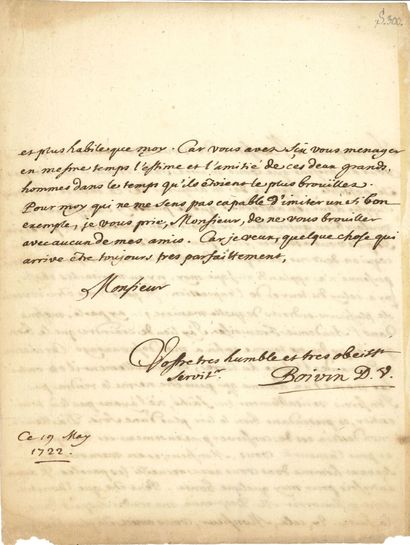 S. 300.
et plus habile que moy. Car vous avez sçu vous menager
en mesme temps l'estime et l'amitié de ces deux grands
hommes dans le temps qu'ils étoient le plus brouillez.
Pour moy qui ne me sens pas capable d'imiter un si bon
exemple, je vous prie, Monsieur, de ne vous brouiller
avec aucun de mes amis. Car je veux, quelque chose qui
arrive être toujours tres parfaitement,
Monsieur
Vostre tres humble et tres obeisst.
servitr.
Boivin D. V.
Ce 19 May
1722.